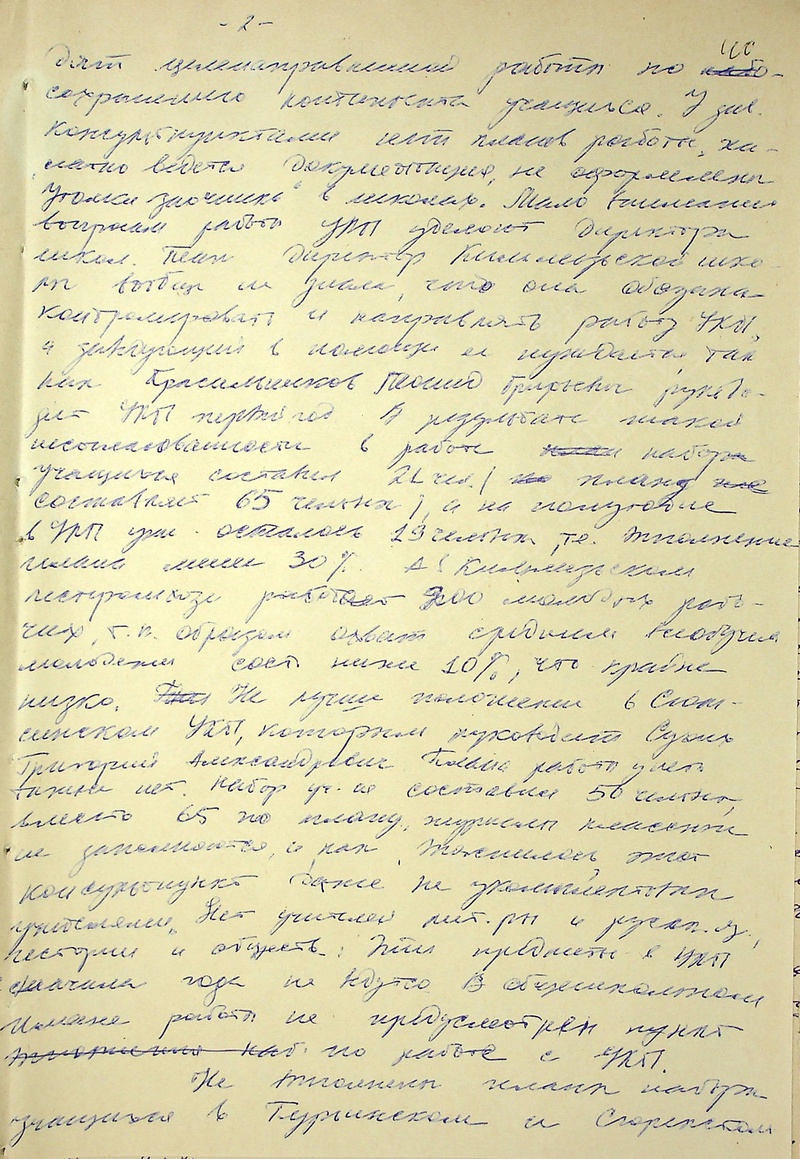 - 2 -
дят целенаправленной работы по
сохранению контингента учащихся. У зав.
консультпунктами нет планов работы, ха-
латно ведется документация, не оформлены
уголки заочника в школах. Мало внимания
вопросам работы УКП уделяют директора
школ. Так директор Кильмезьской шко-
лы вообще не знала, что она обязана
контролировать и направлять работу УКП,
а заведующий в помощи ее нуждается, так
как Красильников руково-
дит УКП первый год. В результате такой
несогласованности в работе набор
учащихся составил 21 чел. ( план
составляет 65 человек ), а на полугодие
в УКП уже осталось 19 человек, т.е. выполнение
плана менее 30%. А в Кильмезьском
леспромхозе работает 200 молодых рабо-
чих, т.о. образом охват средним всеобучем
молодежи сост. ниже 10%, что крайне
низко. Не лучше положение в Сюм-
синском УКП, которым руководит
Григорий Александрович. Плана работы у него
также нет. Набор уч-ся составил 50 человек,
вместо 65 по плану, журналы классные
не заполняются, и как выяснилось этот
консультпункт даже не укомплектован
учителями. Нет учителей лит-ры и русск. яз.,
истории и обществ. Эти предметы в УКП
с начала года не ведутся. В общешкольном
плане работы не предусмотрен пункт
по работе с УКП.
Не выполнены планы набора
учащихся в Гурьинском и Сюрекском